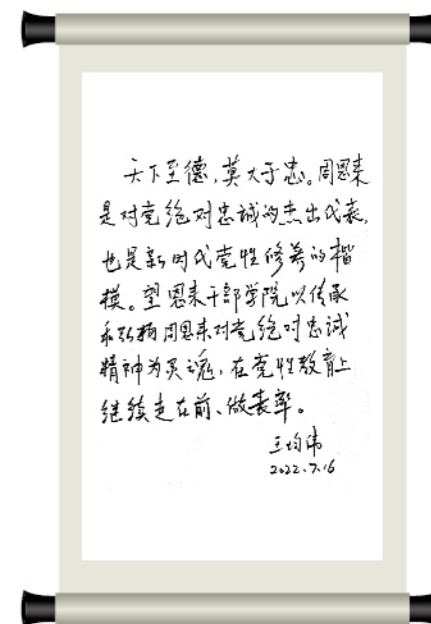 天下至德，莫大于忠。周恩来
是对党绝对忠诚的杰出代表，
也是新时代党性修养的楷
模。望恩来干部学院以传承
和弘扬周恩来对党绝对忠诚
精神为灵魂，在党性教育上
继续走在前、做表率。
王均伟
2022.7.16